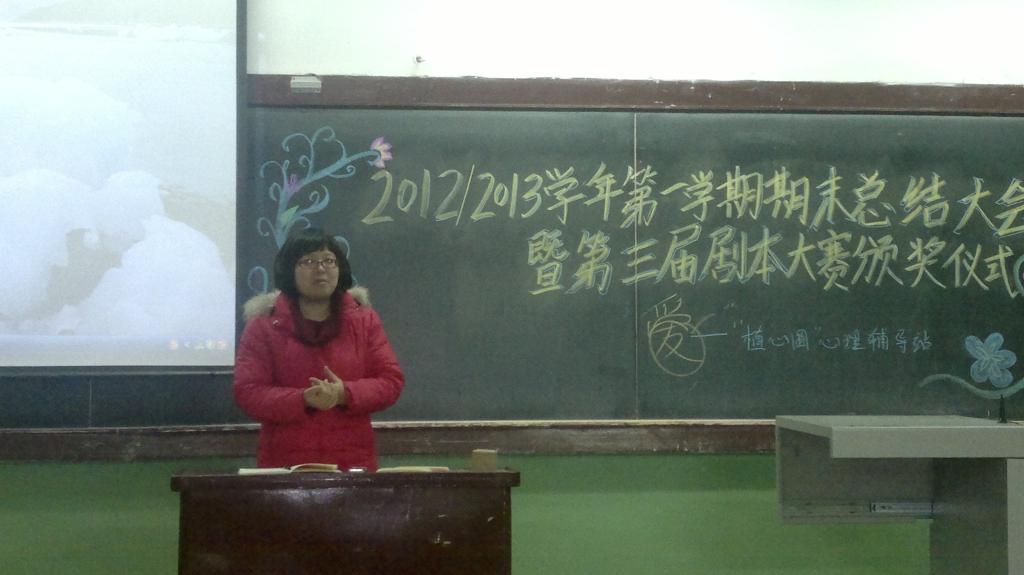 2012/2013学年第一学期期末总结大会
暨第三届剧本大赛颁奖仪式
爱 — "植心圈"心理辅导站